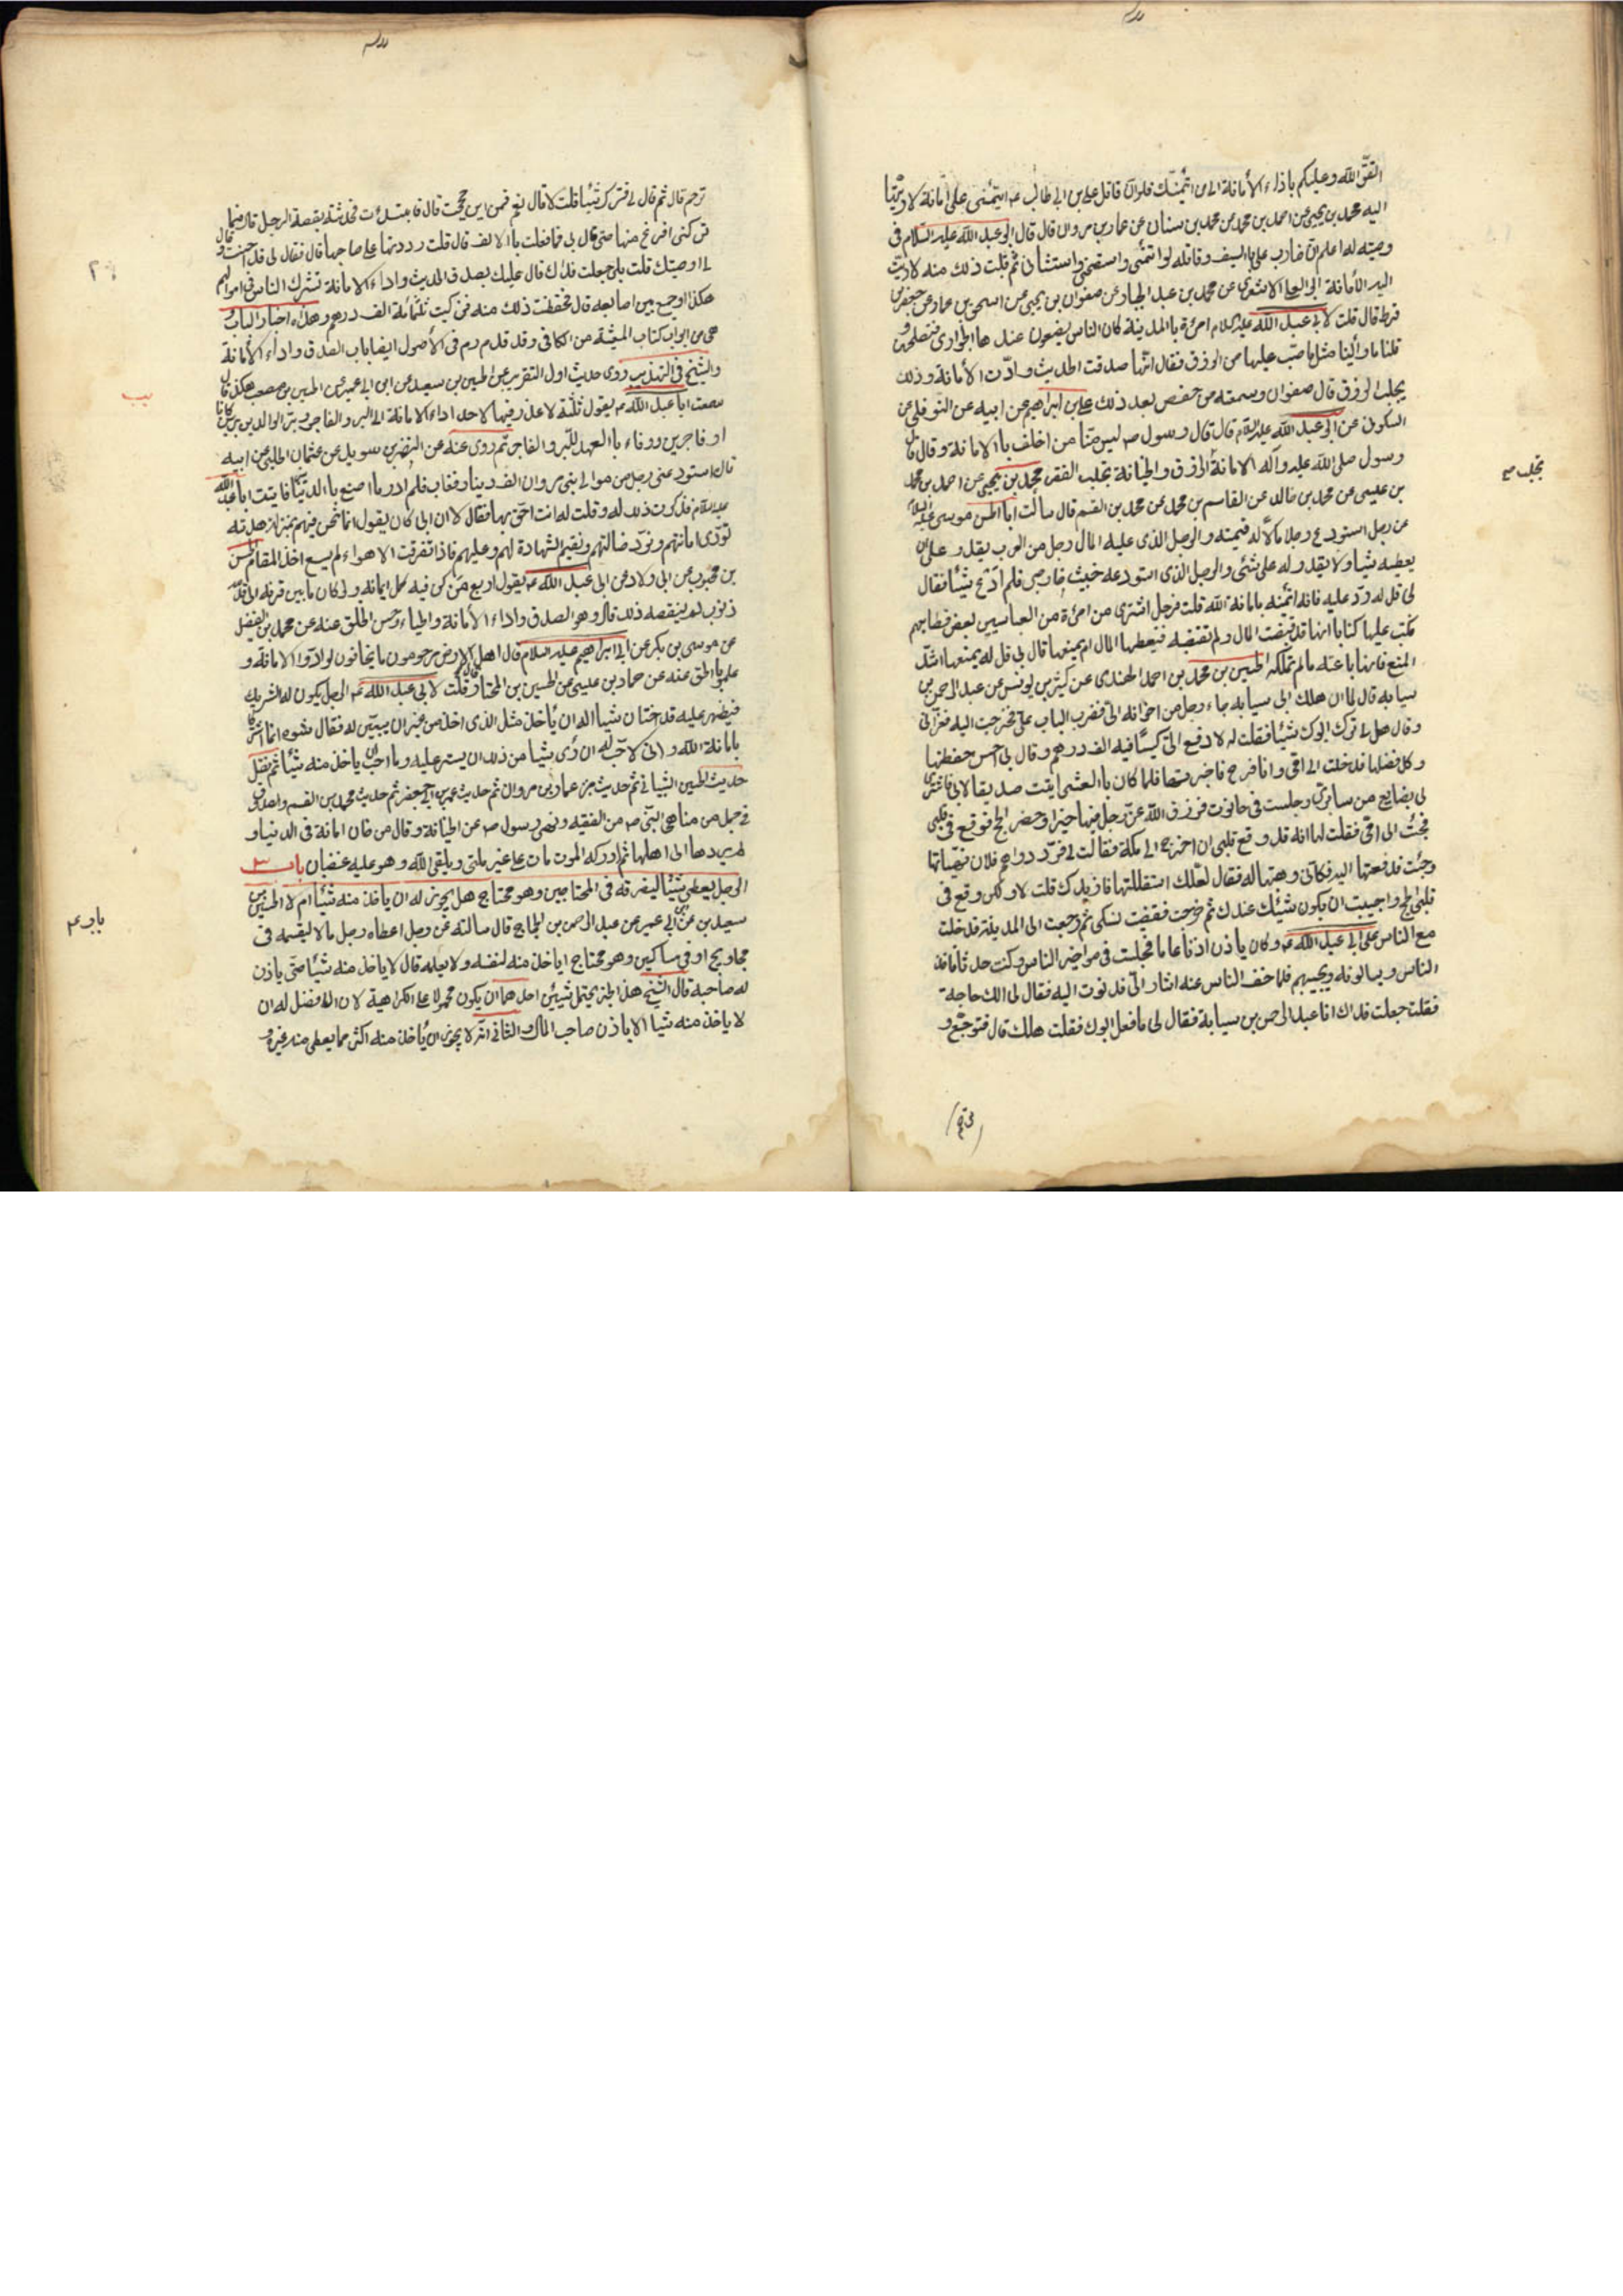 اتقوا الله وعليكم باداء الأمانة الى من ائتمنك فلو ان قاتل على بن ابى طالب عه ائتمنني على امانة لاديتها
اليه محمد بن يحيى عن احمد بن محمد عن محمد بن سنان عن عمار بن مروان قال قال ابو عبد الله عليه السلام فى
وصيته له اعلم ان ضارب على بالسيف وقاتله لو ائتمنني واستنصحني واستشارنى ثم قبلت ذلك منه لاديت
اليه الأمانة ابو على الاشعرى عن محمد بن عبد الجبار عن صفوان بن يحيى عن اسحق بن عمار عن حفص بن
قرط قال قلت لابى عبد الله عليه السلام امرئة بالمدينة كان الناس يضعون عندها الجوارى فتصلحهن و
قلنا ما رأينا مثل ما صب عليها من الرزق فقال انها صدقت الحديث وادت الأمانة وذلك
يجلب الرزق قال صفوان وسمعته من حفص بعد ذلك على بن ابراهيم عن ابيه عن النوفلى عن
السكونى عن ابى عبد الله عليه السلام قال قال رسول صه ليس منا من اخلف بالامانة وقال قال
رسول صلى الله عليه وآله الامانة الرزق والخيانة تجلب الفقر محمد بن يحيى عن احمد بن محمد
بن عيسى عن محمد بن خالد عن القاسم بن محمد عن محمد بن القسم قال سألت ابا الحسن موسى عليه السلام
عن رجل استودع رجلا مالا له قيمته والرجل الذى عليه المال رجل من العرب يقدر على ان
يعطيه شيئا ولا يقدر له على شئى والرجل الذى استودعه خبيث خارجى فلم ادع شيئا فقال
لى قل له رد عليه فانه ائتمنه بامانة الله قلت فرجل اشترى من امرئة من العباسيين بعض قضايعهم
فكتب عليها كتابا انها قد قبضت المال ولم تقبضه فيعطيها المال ام يمنعها قال لى قل له يمنعها اشد
المنع فانها باعته مالم تملكه الحسين بن محمد بن احمد الهندى عن كثير بن يونس عن عبد الرحمن بن
سيابه قال لما ان هلك ابى سيابه جاء رجل من اخوانه الى فضرب الباب على فخرجت اليه فعزانى
وقال هل ترك ابوك شيئا فقلت له لا دفع الى كيسا فيه الف درهم وقال لى احسن حفظها
وكل فضلها فدخلت الى امى وانا فرح فاخبرتها فلما كان بالعشى اتيت صديقا لابى فاشترى
لى بضايع من سابرى وجلست فى حانوت فرزق الله عز وجل فيها خيرا وحضر الحج فوقع فى قلبى
فجئت الى امى فقلت لها انه قد وقع قلبى ان اخرج الى مكة فقالت لى فرد دراهم فلان فهيأتها
وجئت فدفعتها اليه فكانى وهبتها له فقال لعلك استقللتها فازيدك قلت لا ولكن وقع فى
قلبى الحج واحببت ان يكون شيئك عندك ثم خرجت فقضيت نسكى ثم رجعت الى المدينة فدخلت
مع الناس على ابى عبد الله عه وكان ياذن اذنا عاما فجلست فى مواخير الناس وكنت حدثا فاخذ
الناس ويسالونه ويجيبهم فلما خف الناس عنه اشار الى فدنوت اليه فقال لى الك حاجة
فقلت جعلت فداك انا عبد الرحمن بن سيابة فقال لى ما فعل ابوك فقلت هلك قال فتوجع و
تجلب صح
ترحم قال ثم قال لى فترك شيئا قلت لا قال نعم فمن اين حججت قال فابتدئت فحدثته بقصة الرجل قال فما
تركنى افرغ منها حتى قال لى فما فعلت بالالف قال قلت رددتها على صاحبها قال فقال لى قد احسنت وقال
لى الا اوصيك قلت بلى جعلت فداك قال عليك بصدق الحديث واداء الامانة تشرك الناس فى اموالهم
هكذا وجمع بين اصابعه قال فحفظت ذلك منه فزكيت ثلثمائة الف درهم وهذه اخبار الباب
هى من ابواب كتاب المعيشة من الكافى وقد قدم رم فى الأصول ايضا باب الصدق واداء الأمانة
والشيخ فى التهذيب روى حديث اول التقريب عن الحسين بن سعيد عن ابن ابى عمير عن الحسين بن مصعب هكذا قال
سمعت ابا عبد الله عه يقول ثلثة لا عذر فيها لاحد اداء الامانة الى البر والفاجر وبر الوالدين برين كانا
او فاجرين ووفاء بالعهد للبر والفاجر ثم روى عنه عن النضر بن سويد عن عثمان الحلبى عن ابيه
قال استودعنى رجل من موالى بنى مروان الف دينار فغاب فلم ادر ما اصنع بالدنانير فاتيت ابا عبد الله
عليه السلام فذكرت ذلك له وقلت له انت احق بها فقال لا ان ابى كان يقول انما نحن فيهم بمنزلة هدنة
تؤدى امانتهم ونرد ضالتهم ونقيم الشهادة لهم وعليهم فاذا تفرقت الاهواء لم يسع احد المقام الحسن
بن محبوب عن ابى ولاد عن ابى عبد الله عه يقول اربع من كن فيه كمل ايمانه ولو كان ما بين قرنه الى قدمه
ذنوب لم ينقصه ذلك قال وهو الصدق واداء الأمانة والحياء وحسن الخلق عنه عن محمد بن الفضيل
عن موسى بن بكر عن ابى ابراهيم عليه السلام قال اهل الارض مرحومون ما يخافون لو ادوا الامانة و
عملوا بالحق عنه عن حماد بن عيسى عن الحسين بن المختار قال قلت لابى عبد الله عه الرجل يكون له الشريك
فيظهر عليه قد اختان شيئا اله ان ياخذ مثل الذى اخذ من غير ان يبين له فقال شوه انما اشتركا
بامانة الله وانى لاحب له ان رأى شيئا من ذلك ان يستر عليه وما احب ان ياخذ منه شيئا ثم نقل
حديث الحسين الشيبانى ثم حديث عمار بن مروان ثم حديث عمر بن ابى حفص ثم حديث محمد بن القسم والصدوق
فى جمل من مناهى النبى صه من الفقيه ونهى رسول صه عن الخيانة وقال من خان امانة فى الدنيا و
لم يردها الى اهلها ثم ادركه الموت مات على غير ملتى ويلقى الله وهو عليه غضبان باب
الرجل يعطى شيئا ليفرقه فى المحتاجين وهو محتاج هل يجوز له ان ياخذ منه شيئا ام لا الحسين بن
سعيد عن ابن ابى عمير عن عبد الرحمن بن الحجاج قال سالته عن رجل اعطاه رجل مالا ليقسمه فى
محاويج او فى مساكين وهو محتاج اياخذ منه لنفسه ولا يعلمه قال لا ياخذ منه شيئا حتى ياذن
له صاحبه قال الشيخ هذا الخبر يحتمل شيئين احدهما ان يكون محمولا على الكراهية لان الافضل له ان
لا ياخذ منه شيئا الا باذن صاحب المال والثانى انه لا يجوز ان ياخذ منه اكثر مما يعطى منه غيره و
يب